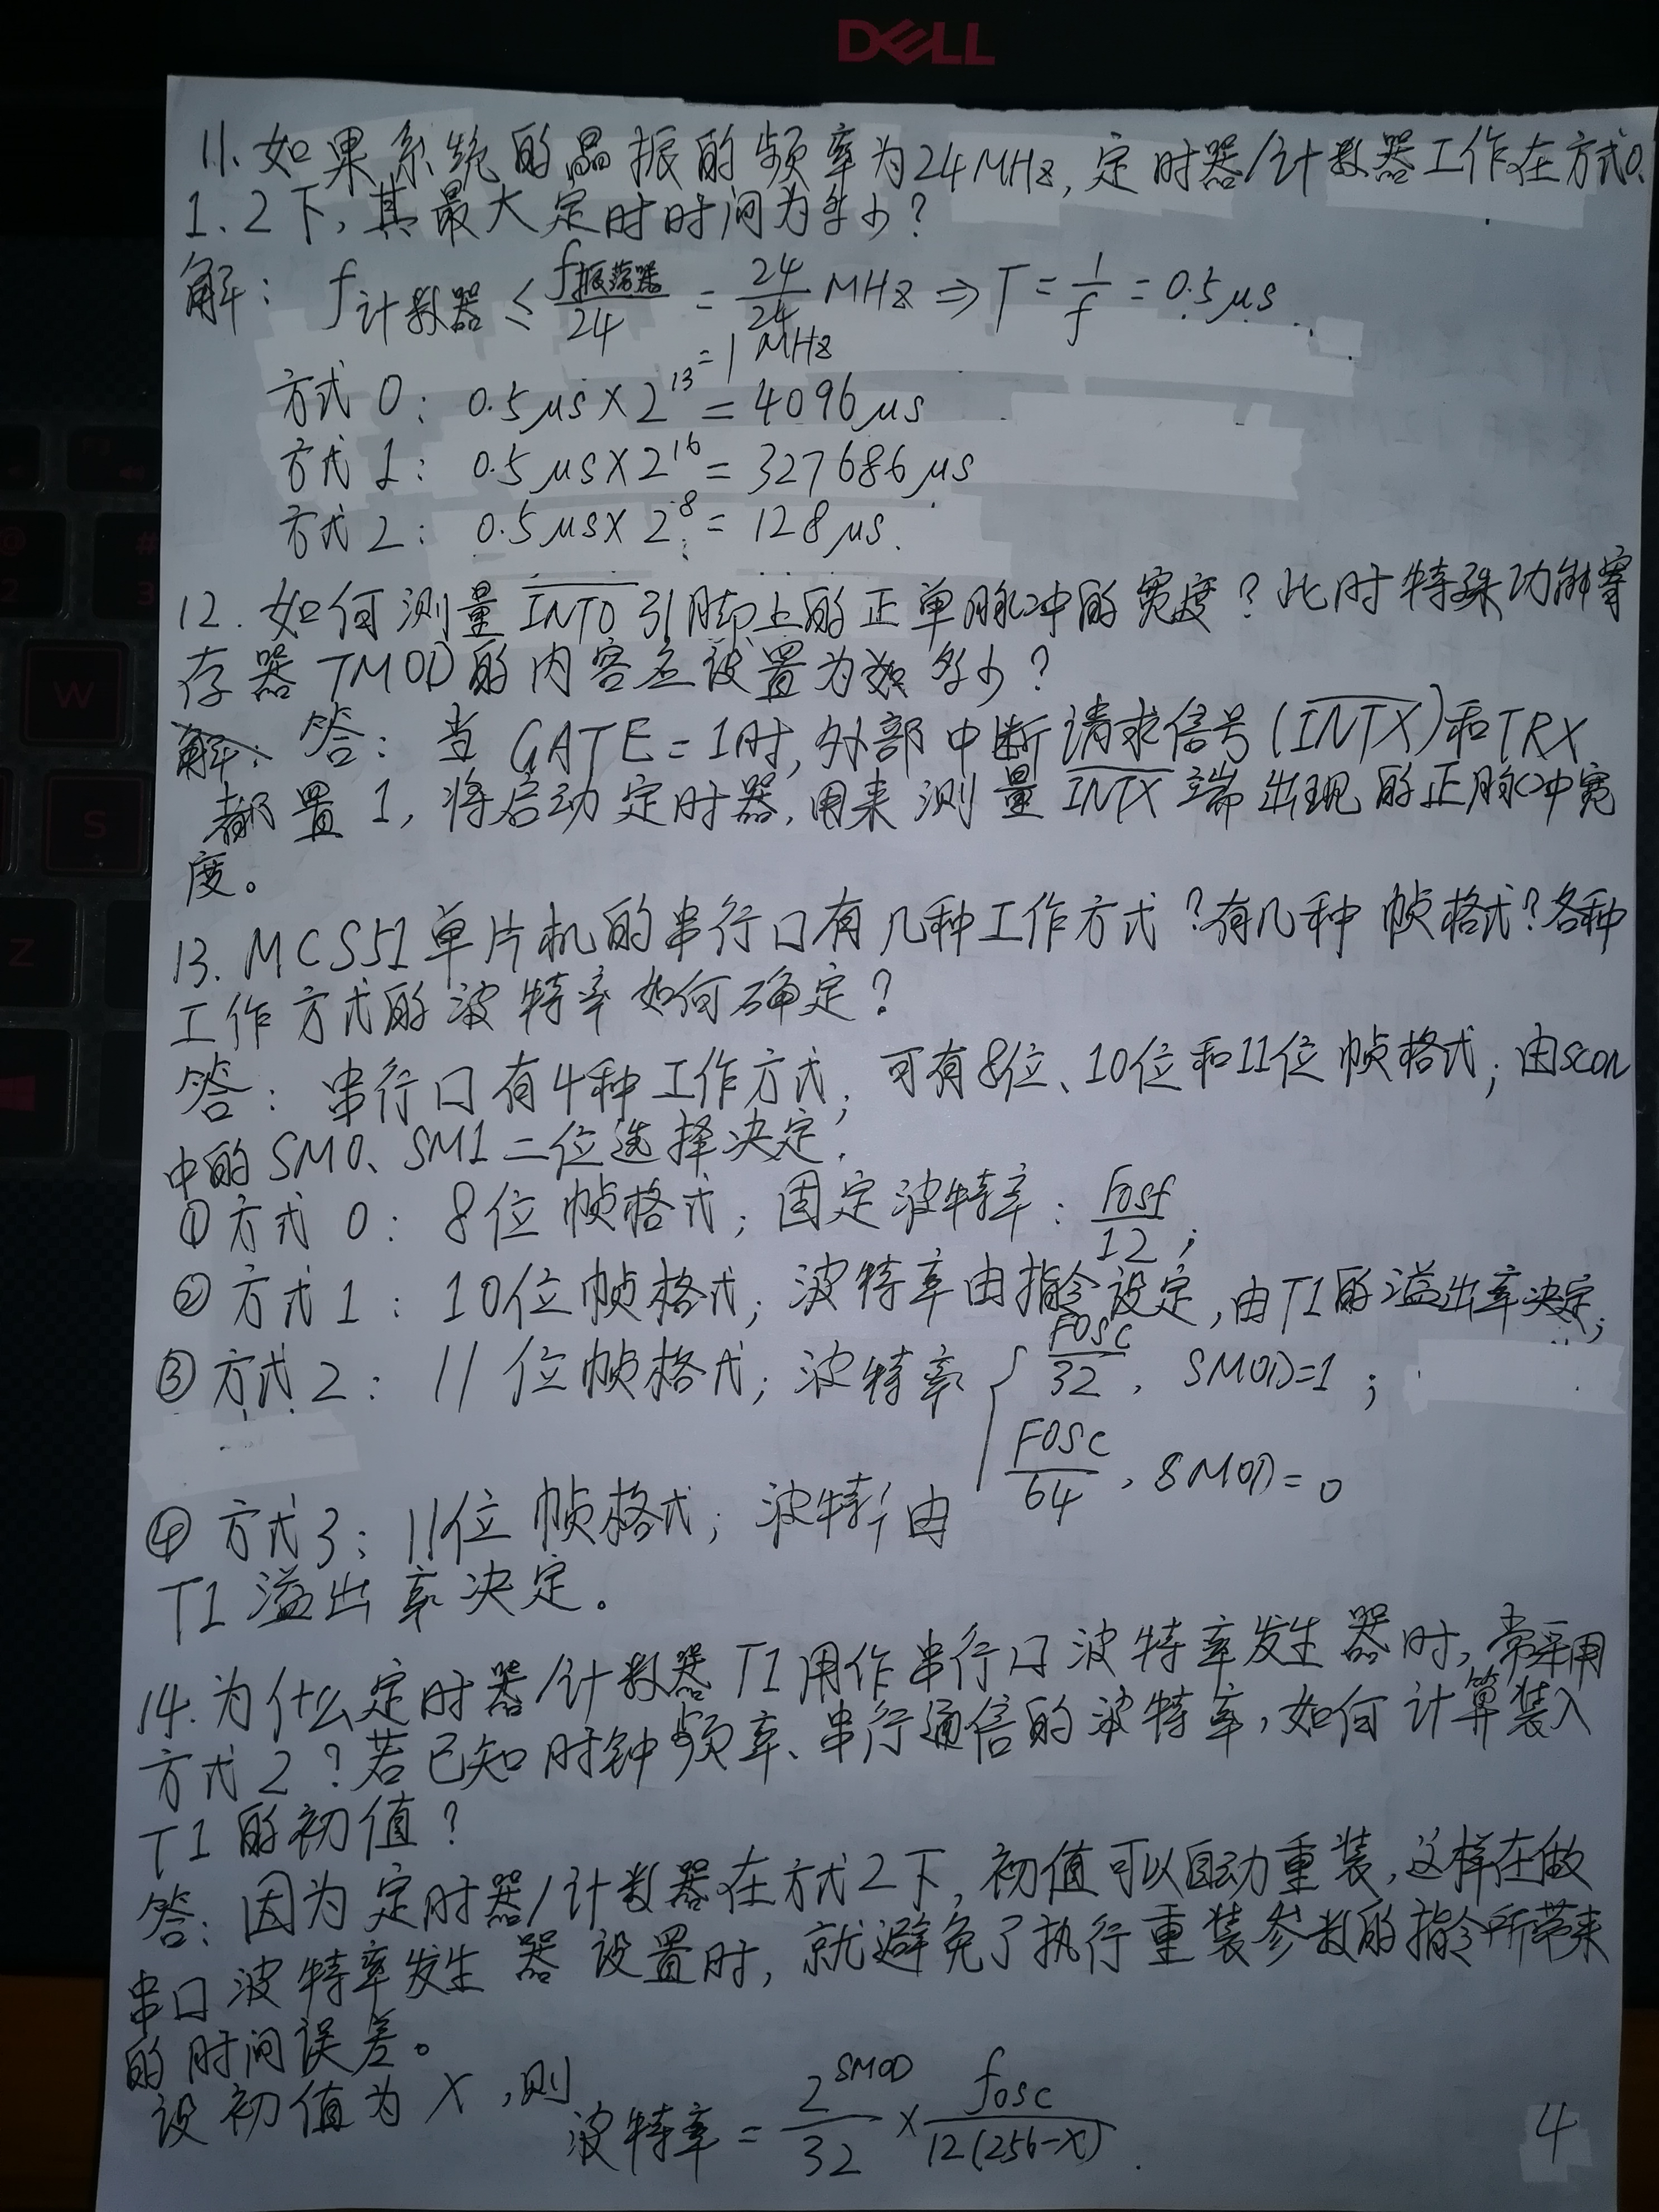 DELL
11. 如果系统的晶振的频率为24MHz, 定时器/计数器工作在方式0、
1、2下, 其最大定时时间为多少?
解: f计数器 ≤ f振荡器/24 = 24/24 MHz ⇒ T = 1/f = 0.5μs
= 1 MHz
方式0: 0.5μs×2^13 = 4096μs
方式1: 0.5μs×2^16 = 327686μs
方式2: 0.5μs×2^8 = 128μs.
12. 如何测量INT0引脚上的正单脉冲的宽度? 此时特殊功能寄
存器TMOD的内容应设置为 多少?
答: 当GATE=1时, 外部中断请求信号(INTX)和TRX
都置1, 将启动定时器, 用来测量INTX端出现的正脉冲宽
度。
13. MCS51单片机的串行口有几种工作方式? 有几种帧格式? 各种
工作方式的波特率如何确定?
答: 串行口有4种工作方式; 可有8位、10位和11位帧格式; 由SCON
中的SM0、SM1二位选择决定.
① 方式0: 8位帧格式; 固定波特率: fosf/12;
② 方式1: 10位帧格式; 波特率由指令设定, 由T1的溢出率决定;
③ 方式2: 11位帧格式; 波特率 { Fosc/32, SMOD=1;
Fosc/64, SMOD=0
④ 方式3: 11位帧格式; 波特率由
T1溢出率决定。
14. 为什么定时器/计数器T1用作串行口波特率发生器时, 常采用
方式2? 若已知时钟频率、串行通信的波特率, 如何计算装入
T1的初值?
答: 因为定时器/计数器在方式2下, 初值可以自动重装, 这样在做
串口波特率发生器设置时, 就避免了执行重装参数的指令所带来
的时间误差。
设初值为X, 则
波特率 = 2^SMOD/32 × fosc/12(256-X).
4